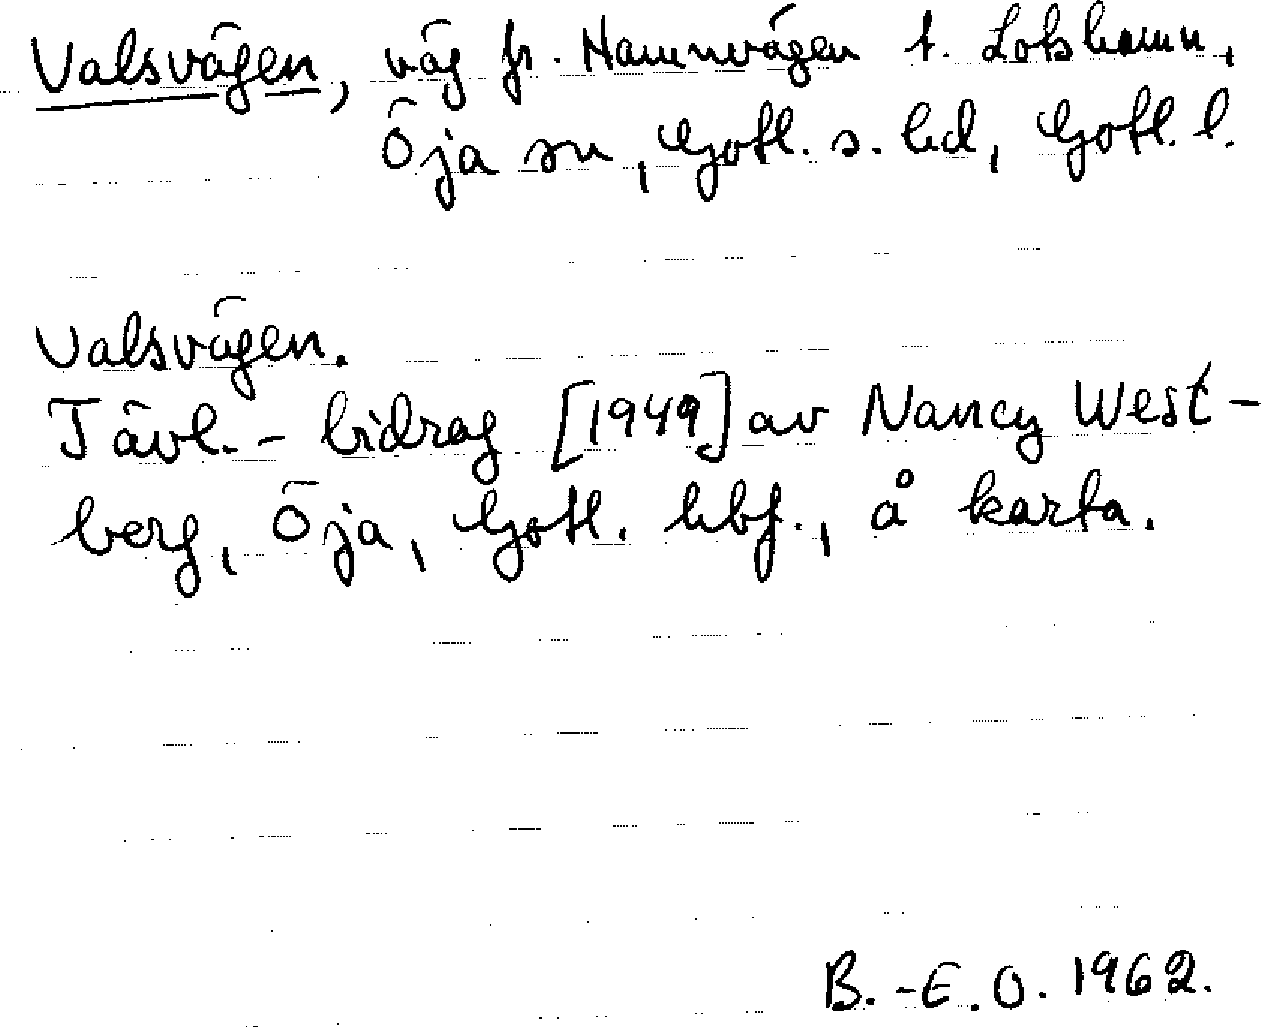 Valsvägen, väg fr. Hamnvägen t. Lotshamn,
Öja sn, Gotl. s. hd, Gotl. l.
Valsvägen.
Tävl.-bidrag [1949] av Nancy West-
berg, Öja, Gotl. hbf., å karta.
B.-E.O. 1962.